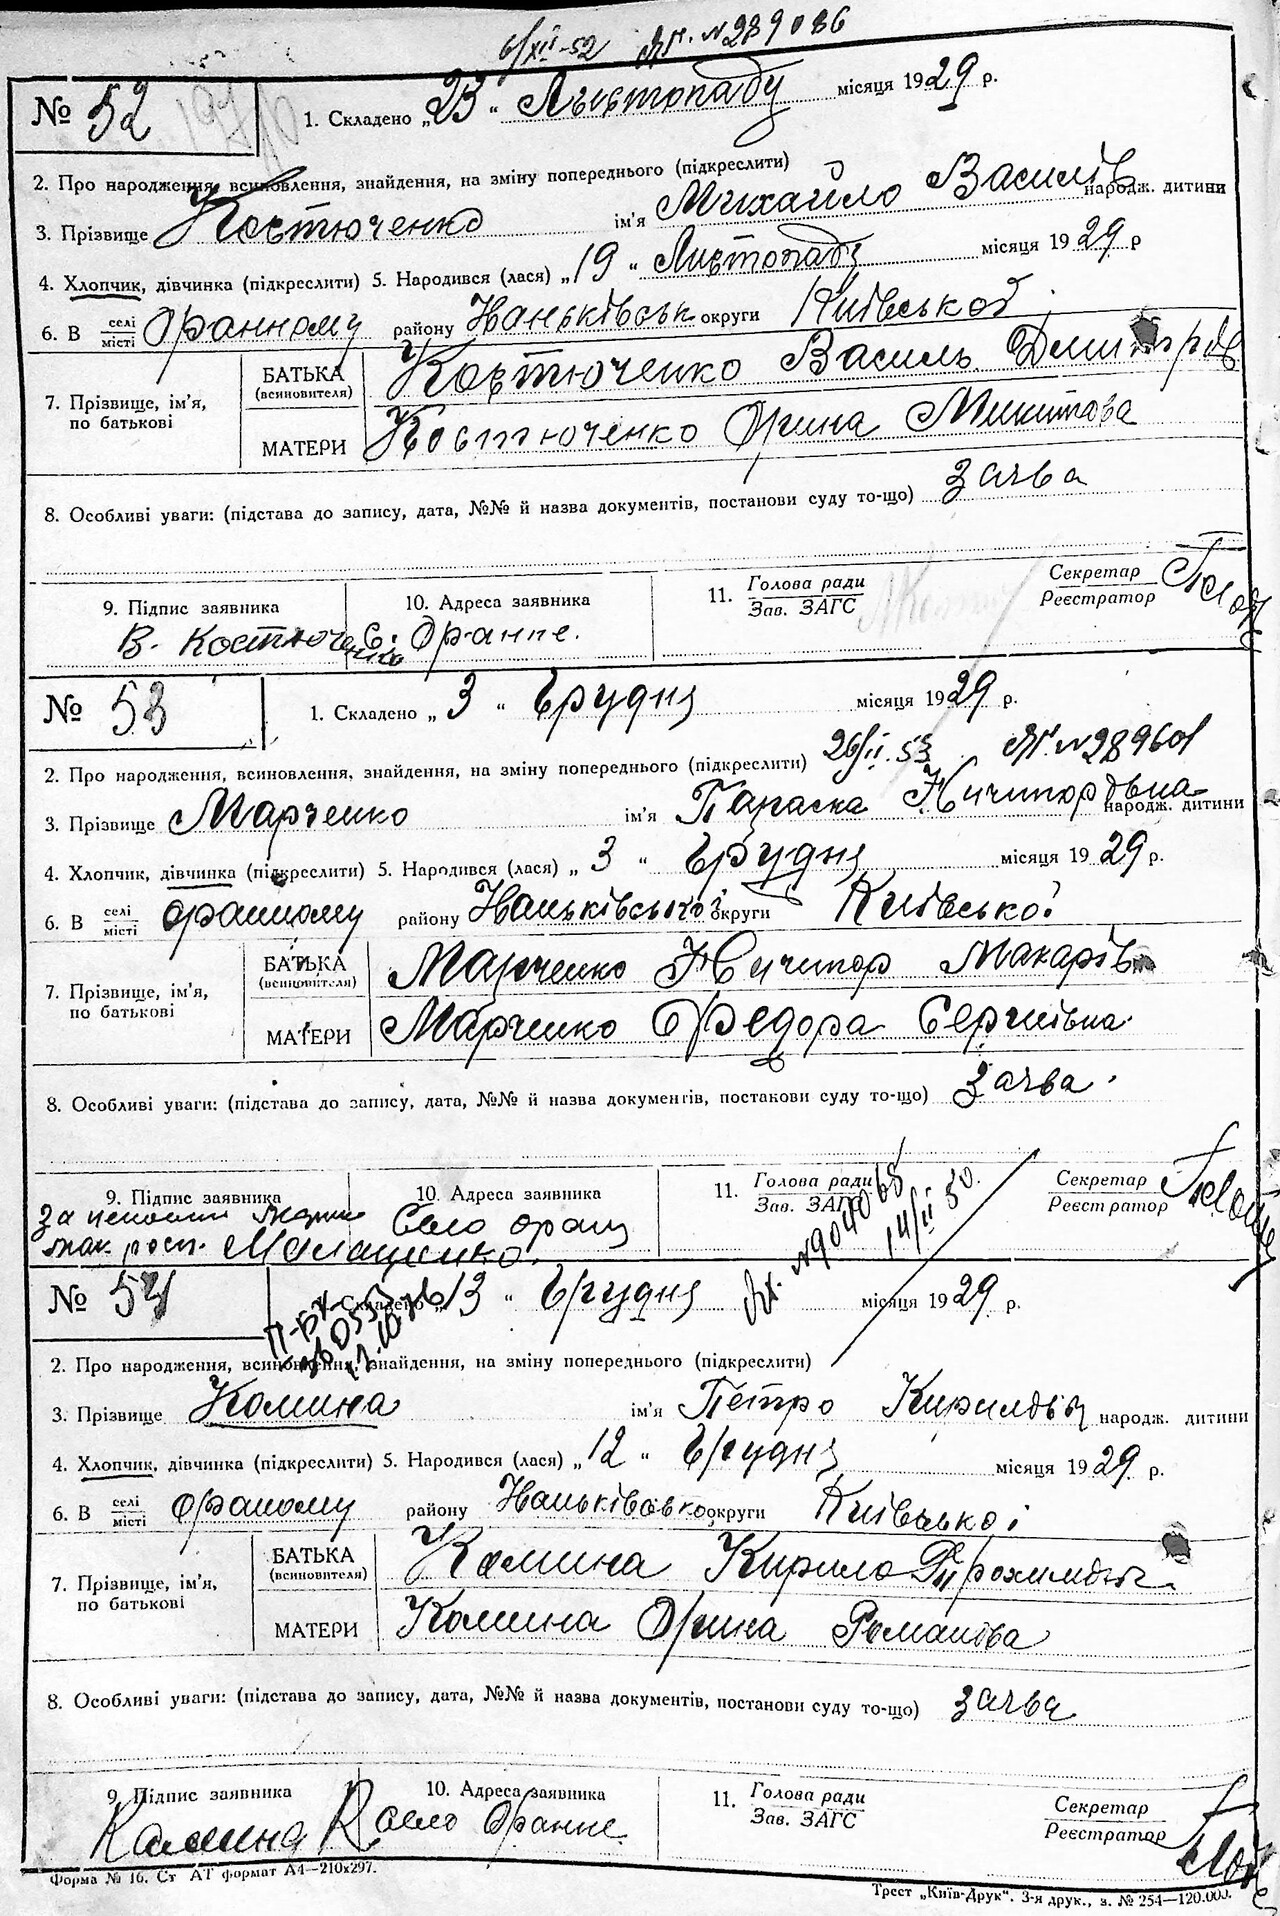 6/XII-52 Яг. № 289086
№ 52
1. Складено „23" Листопаду місяця 1929 р.
2. Про народження, всиновлення, знайдення, на зміну попереднього (підкреслити)
3. Прізвище Костюченко ім'я Михайло Василів народж. дитини
4. Хлопчик, дівчинка (підкреслити) 5. Народився (лася) „19" Листопаду місяця 1929 р
6. В селі місті Оранному району Ханьківськ округи Київської
7. Прізвище, ім'я, по батькові
БАТЬКА (всиновителя) Костюченко Василь Дмитрів
МАТЕРИ Костюченко Орина Микитова
8. Особливі уваги: (підстава до запису, дата, №№ й назва документів, постанови суду то-що) заява
9. Підпис заявника 10. Адреса заявника 11. Голова ради Зав. ЗАГС Секретар Реєстратор
В. Костюченко С. Оранне.
№ 53
1. Складено „3" Грудня місяця 1929 р.
2. Про народження, всиновлення, знайдення, на зміну попереднього (підкреслити) 26/II.53 Яг. № 289601
3. Прізвище Марченко ім'я Параска Ничипорівна народж. дитини
4. Хлопчик, дівчинка (підкреслити) 5. Народився (лася) „3" Грудня місяця 1929 р.
6. В селі місті Оранному району Ханьківської округи Київської
7. Прізвище, ім'я, по батькові
БАТЬКА (всиновителя) Марченко Ничипор Макарів
МАТЕРИ Марченко Федора Сергиївна
8. Особливі уваги: (підстава до запису, дата, №№ й назва документів, постанови суду то-що) Заява
9. Підпис заявника 10. Адреса заявника 11. Голова ради Зав. ЗАГС Секретар Реєстратор
Село Оран
№ 904065
14/II 50.
№ 54
1. Складено „13" Грудня місяця 1929 р.
2. Про народження, всиновлення, знайдення, на зміну попереднього (підкреслити)
3. Прізвище Комина ім'я Петро Кирилович народж. дитини
4. Хлопчик, дівчинка (підкреслити) 5. Народився (лася) „12" Грудня місяця 1929 р.
6. В селі місті Ораному району Ханьківсько округи Київської
7. Прізвище, ім'я, по батькові
БАТЬКА (всиновителя) Комина Кирило
МАТЕРИ Комина Орина Романова
8. Особливі уваги: (підстава до запису, дата, №№ й назва документів, постанови суду то-що) заява
9. Підпис заявника 10. Адреса заявника 11. Голова ради Зав. ЗАГС Секретар Реєстратор
Камина К село Оранне.
Форма № 16. Ст АТ формат А4—210х297.
Трест „Київ-Друк". 3-я друк., з. № 254—120.000.